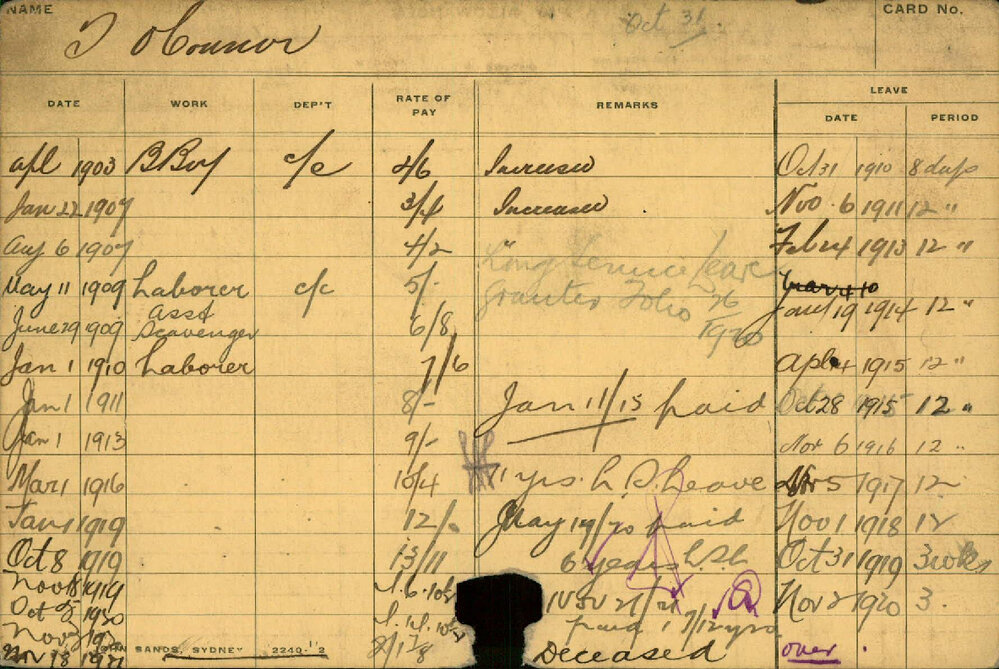 NAME
CARD No.
T O'Connor
Oct 31
DATE WORK DEP'T RATE OF PAY REMARKS LEAVE
DATE PERIOD
Apl 1903 B Boy c/c 2/6 Increased Oct 31 1910 8 days
Jan 22 1907 3/4 Increased Nov 6 1911 12 "
Aug 6 1907 4/2 Long Service Leave Feb 24 1913 12 "
May 11 1909 Laborer c/c 5/- granted Folio 26
1920
June 29 1909 Asst Scavenger 6/8 Jany 19 1914 12 "
Jan 1 1910 Laborer 7/6 Apl 4 1915 12 "
Jan 1 1911 8/- Jan 11/15 paid Oct 28 1915 12 "
Jan 1 1913 9/- Nov 6 1916 12 "
Mar 1 1916 10/4 11 yrs. L. S. Leave 5 1917 12
Jan 1 1919 12/- May 19/20 paid Nov 1 1918 12
Oct 8 1919 13/11 6 years L.S.L. Oct 31 1919 3 wks
Nov 18 1919 Nov 2 1920 3.
Oct 1920 paid 1 7/12 yrs
Nov
Nov 18 1921 JOHN SANDS, SYDNEY 2240-'12 Deceased over